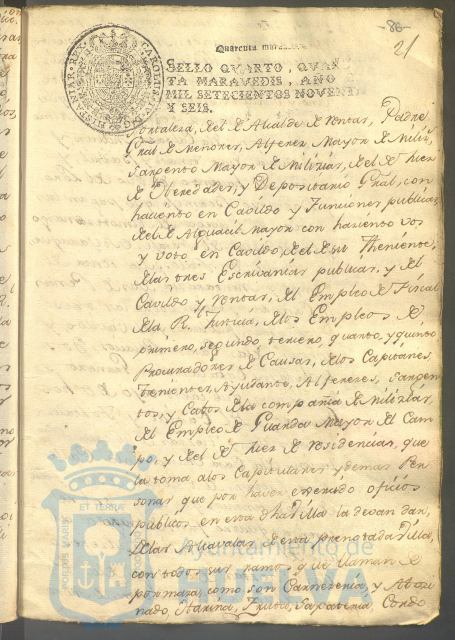 86
21
Quarenta marauedis.
SELLO QVARTO, QVAREN
TA MARAVEDIS, AÑO
MIL SETECIENTOS NOVENTA
Y SEIS.
CAROLUS IV
HISPANIAR. REX
Fortaleza, del de Alcalde de ventas, Padre
Gral. de Menores, Alferez Mayor de Miliz.
Sargento Mayor de Milizias, del de Juez
de Heredades, y Depositario Gral, con
haciento en Cavildo y Funciones publicas,
del de Alguacil mayor con haciento vos
y voto en Cavildo, del de su Theniente,
de las tres Escrivanias publicas, y del
Cavildo y ventas, del Empleo de Fiscal
de la R. Justicia, de los Empleos de
primero, segundo, tercero, quarto, y quinto
Procuradores de Causas, de los Capitanes,
Tenientes, Ayudante, Alferezes, Sargen
tos, y Cabos de la compañia de Milizias,
del Empleo de Guarda Mayor del Cam
po, y del de Juez de residencias, que
la toma, a los Capitulares y demas Per
sonas que por haver exercido oficios
publicos en esta dha Villa la devan dar,
de las Alcavalas, de esta prenotada Villa,
con todos sus ramos, que llaman de
por mayor, como son Carneceria, y
Harina, Frutos, Zapateria, Cordo
PORTUS MARIS ET TERRAE
Ayuntamiento de
HUELVA